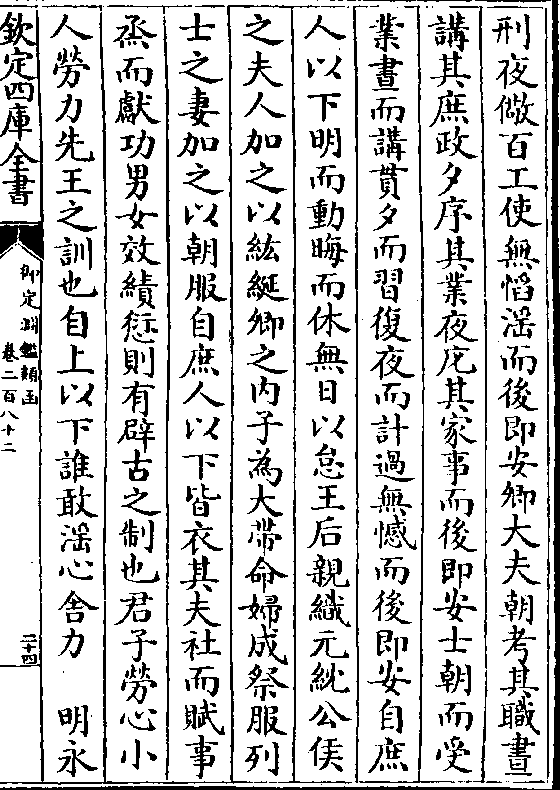 刑夜儆百工使無慆滛而後即安卿大夫朝考其職晝
講其庶政夕序其業夜庀其家事而後即安士朝而受
業晝而講貫夕而習復夜而計過無憾而後即安自庶
人以下明而動晦而休無日以怠王后親織元紞公侯
之夫人加之以紘綖卿之内子為大帶命婦成祭服列
士之妻加之以朝服自庶人以下皆衣其夫社而賦事
烝而獻功男女效績愆則有辟古之制也君子勞心小
人勞力先王之訓也自上以下誰敢滛心舍力　明永
欽定四庫全書
御定淵鑑類函
卷二百八十二
二十四